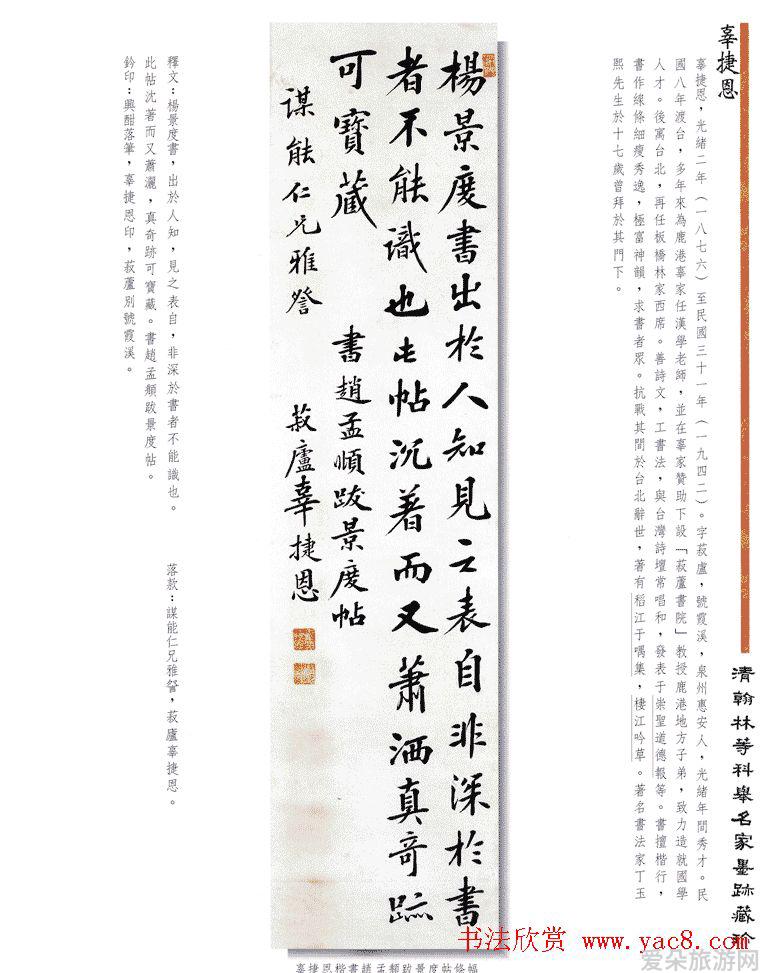 辜捷恩
辜捷恩，光緒二年（一八七六）至民國三十一年（一九四二）。字菽盧，號霞溪，泉州惠安人，光緒年間秀才。民
國八年渡台，多年來為鹿港辜家任漢學老師，並在辜家贊助下設「菽蘆書院」教授鹿港地方子弟，致力造就國學
人才。後寓台北，再任板橋林家西席。善詩文，工書法，與台灣詩壇常唱和，發表于崇聖道德報等。書擅楷行，
書作線條細瘦秀逸，極富神韻，求書者眾。抗戰其間於台北辭世，著有稻江于喁集，棲江吟草。著名書法家丁玉
熙先生於十七歲曾拜於其門下。
清翰林等科舉名家墨跡藏珍
楊景度書出於人知見之表自非深於書
者不能識也此帖沉著而又蕭洒真奇跡
可寶藏
書趙孟頫跋景度帖
謀能仁兄雅詧
菽廬辜捷恩
釋文：楊景度書，出於人知，見之表自，非深於書者不能識也。
此帖沈著而又蕭灑，真奇跡可寶藏。書趙孟頫跋景度帖。
鈐印：興酣落筆，辜捷恩印，菽蘆別號霞溪。
落款：謀能仁兄雅詧，菽廬辜捷恩。
辜捷恩楷書趙孟頫跋景度帖條幅
书法欣赏 www.yac8.com
爱朵旅游网